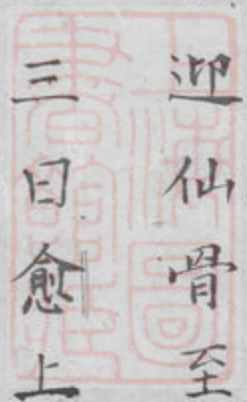 迎仙骨至
三日愈上